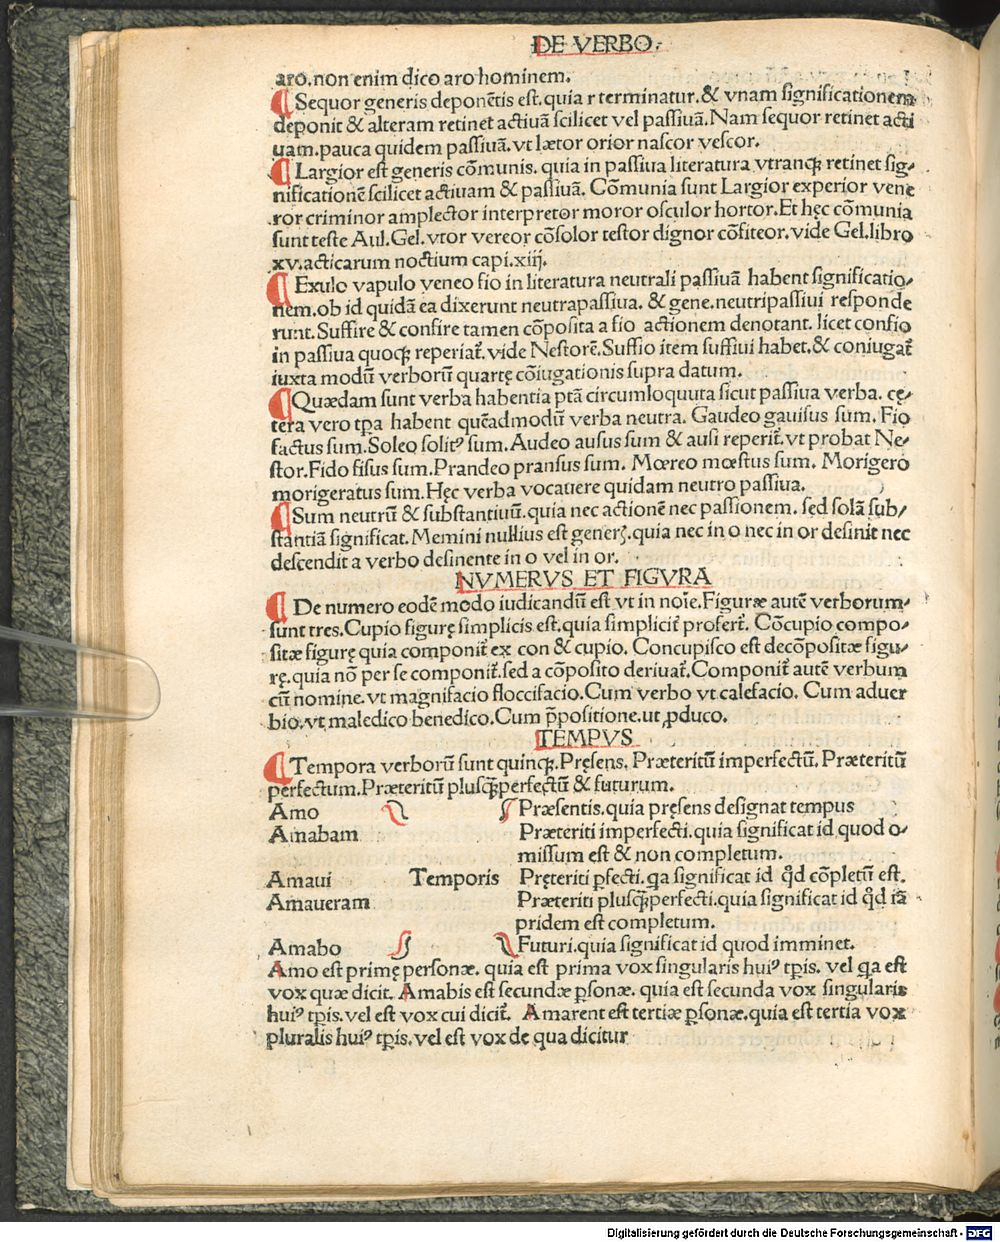 DE VERBO.
aro.non enim dico aro hominem.
¶ Sequor generis deponētis est.quia r terminatur.& vnam significationem
deponit & alteram retinet actiuā scilicet vel passiuā.Nam sequor retinet acti
uam.pauca quidem passiuā.vt lætor orior nascor vescor.
¶ Largior est generis cōmunis. quia in passiua literatura vtranqꝫ retinet sig-
nificationē scilicet actiuam & passiuā. Cōmunia sunt Largior experior vene
ror criminor amplector interpretor moror osculor hortor.Et hęc cōmunia
sunt teste Aul.Gel.vtor vereor cōsolor testor dignor cōfiteor.vide Gel.libro
xv.acticarum noctium capi.xiij.
¶ Exulo vapulo veneo fio in literatura neutrali passiuā habent significatio-
nem.ob id quidā ea dixerunt neutrapassiua. & gene.neutripassiui responde
runt.Suffire & confire tamen cōposita a fio actionem denotant. licet confio
in passiua quoqꝫ reperiat̃.vide Nestorē.Suffio item suffiui habet.& coniugat̃
iuxta modū verborū quartę cōiugationis supra datum.
¶ Quædam sunt verba habentia ptā circumloquuta sicut passiua verba. cę-
tera vero tp̄a habent quēadmodū verba neutra. Gaudeo gauisus sum. Fio
factus sum.Soleo solitꝰ sum.Audeo ausus sum & ausi reperit̃.vt probat Ne-
stor.Fido fisus sum.Prandeo pransus sum. Mœreo mœstus sum. Morigero
morigeratus sum.Hęc verba vocauere quidam neutro passiua.
¶ Sum neutrū & substantiuū.quia nec actionē nec passionem. sed solā sub-
stantiā significat.Memini nullius est generꝭ.quia nec in o nec in or desinit nec
descendit a verbo desinente in o vel in or.
NVMERVS ET FIGVRA
¶ De numero eodē modo iudicandū est vt in noīe.Figuræ autē verborum
sunt tres.Cupio figurę simplicis est.quia simplicit̃ profert̃. Cōcupio compo-
sitæ figurę quia componit̃ ex con & cupio. Concupisco est decōpositæ figu-
rę.quia nō per se componit̃.sed a cōposito deriuat̃.Componit̃ autē verbum
cū nomine.vt magnifacio floccifacio.Cum verbo vt calefacio. Cum aduer
bio.vt maledico benedico.Cum p̄positione.ut ꝓduco.
TEMPVS
¶ Tempora verborū sunt quinqꝫ.Pręsens. Præteritū imperfectū. Præteritū
perfectum.Præteritū plusqꝫperfectū & futurum.
Amo Præsentis.quia pręsens designat tempus
Amabam Præteriti imperfecti.quia significat id quod o-
missum est & non completum.
Amaui Temporis Pręteriti ꝑfecti.qa significat id qd̄ cōpletū est.
Amaueram Præteriti plusqꝫperfecti.quia significat id qd̄ iā
pridem est completum.
Amabo Futuri.quia significat id quod imminet.
Amo est primę personæ. quia est prima vox singularis huiꝰ tp̄is. vel qa est
vox quæ dicit. Amabis est secundæ ꝑsonæ. quia est secunda vox singularis
huiꝰ tp̄is.vel est vox cui dicit̃. Amarent est tertiæ ꝑsonæ.quia est tertia vox
pluralis huiꝰ tp̄is.vel est vox de qua dicitur
Digitalisierung gefördert durch die Deutsche Forschungsgemeinschaft - DFG